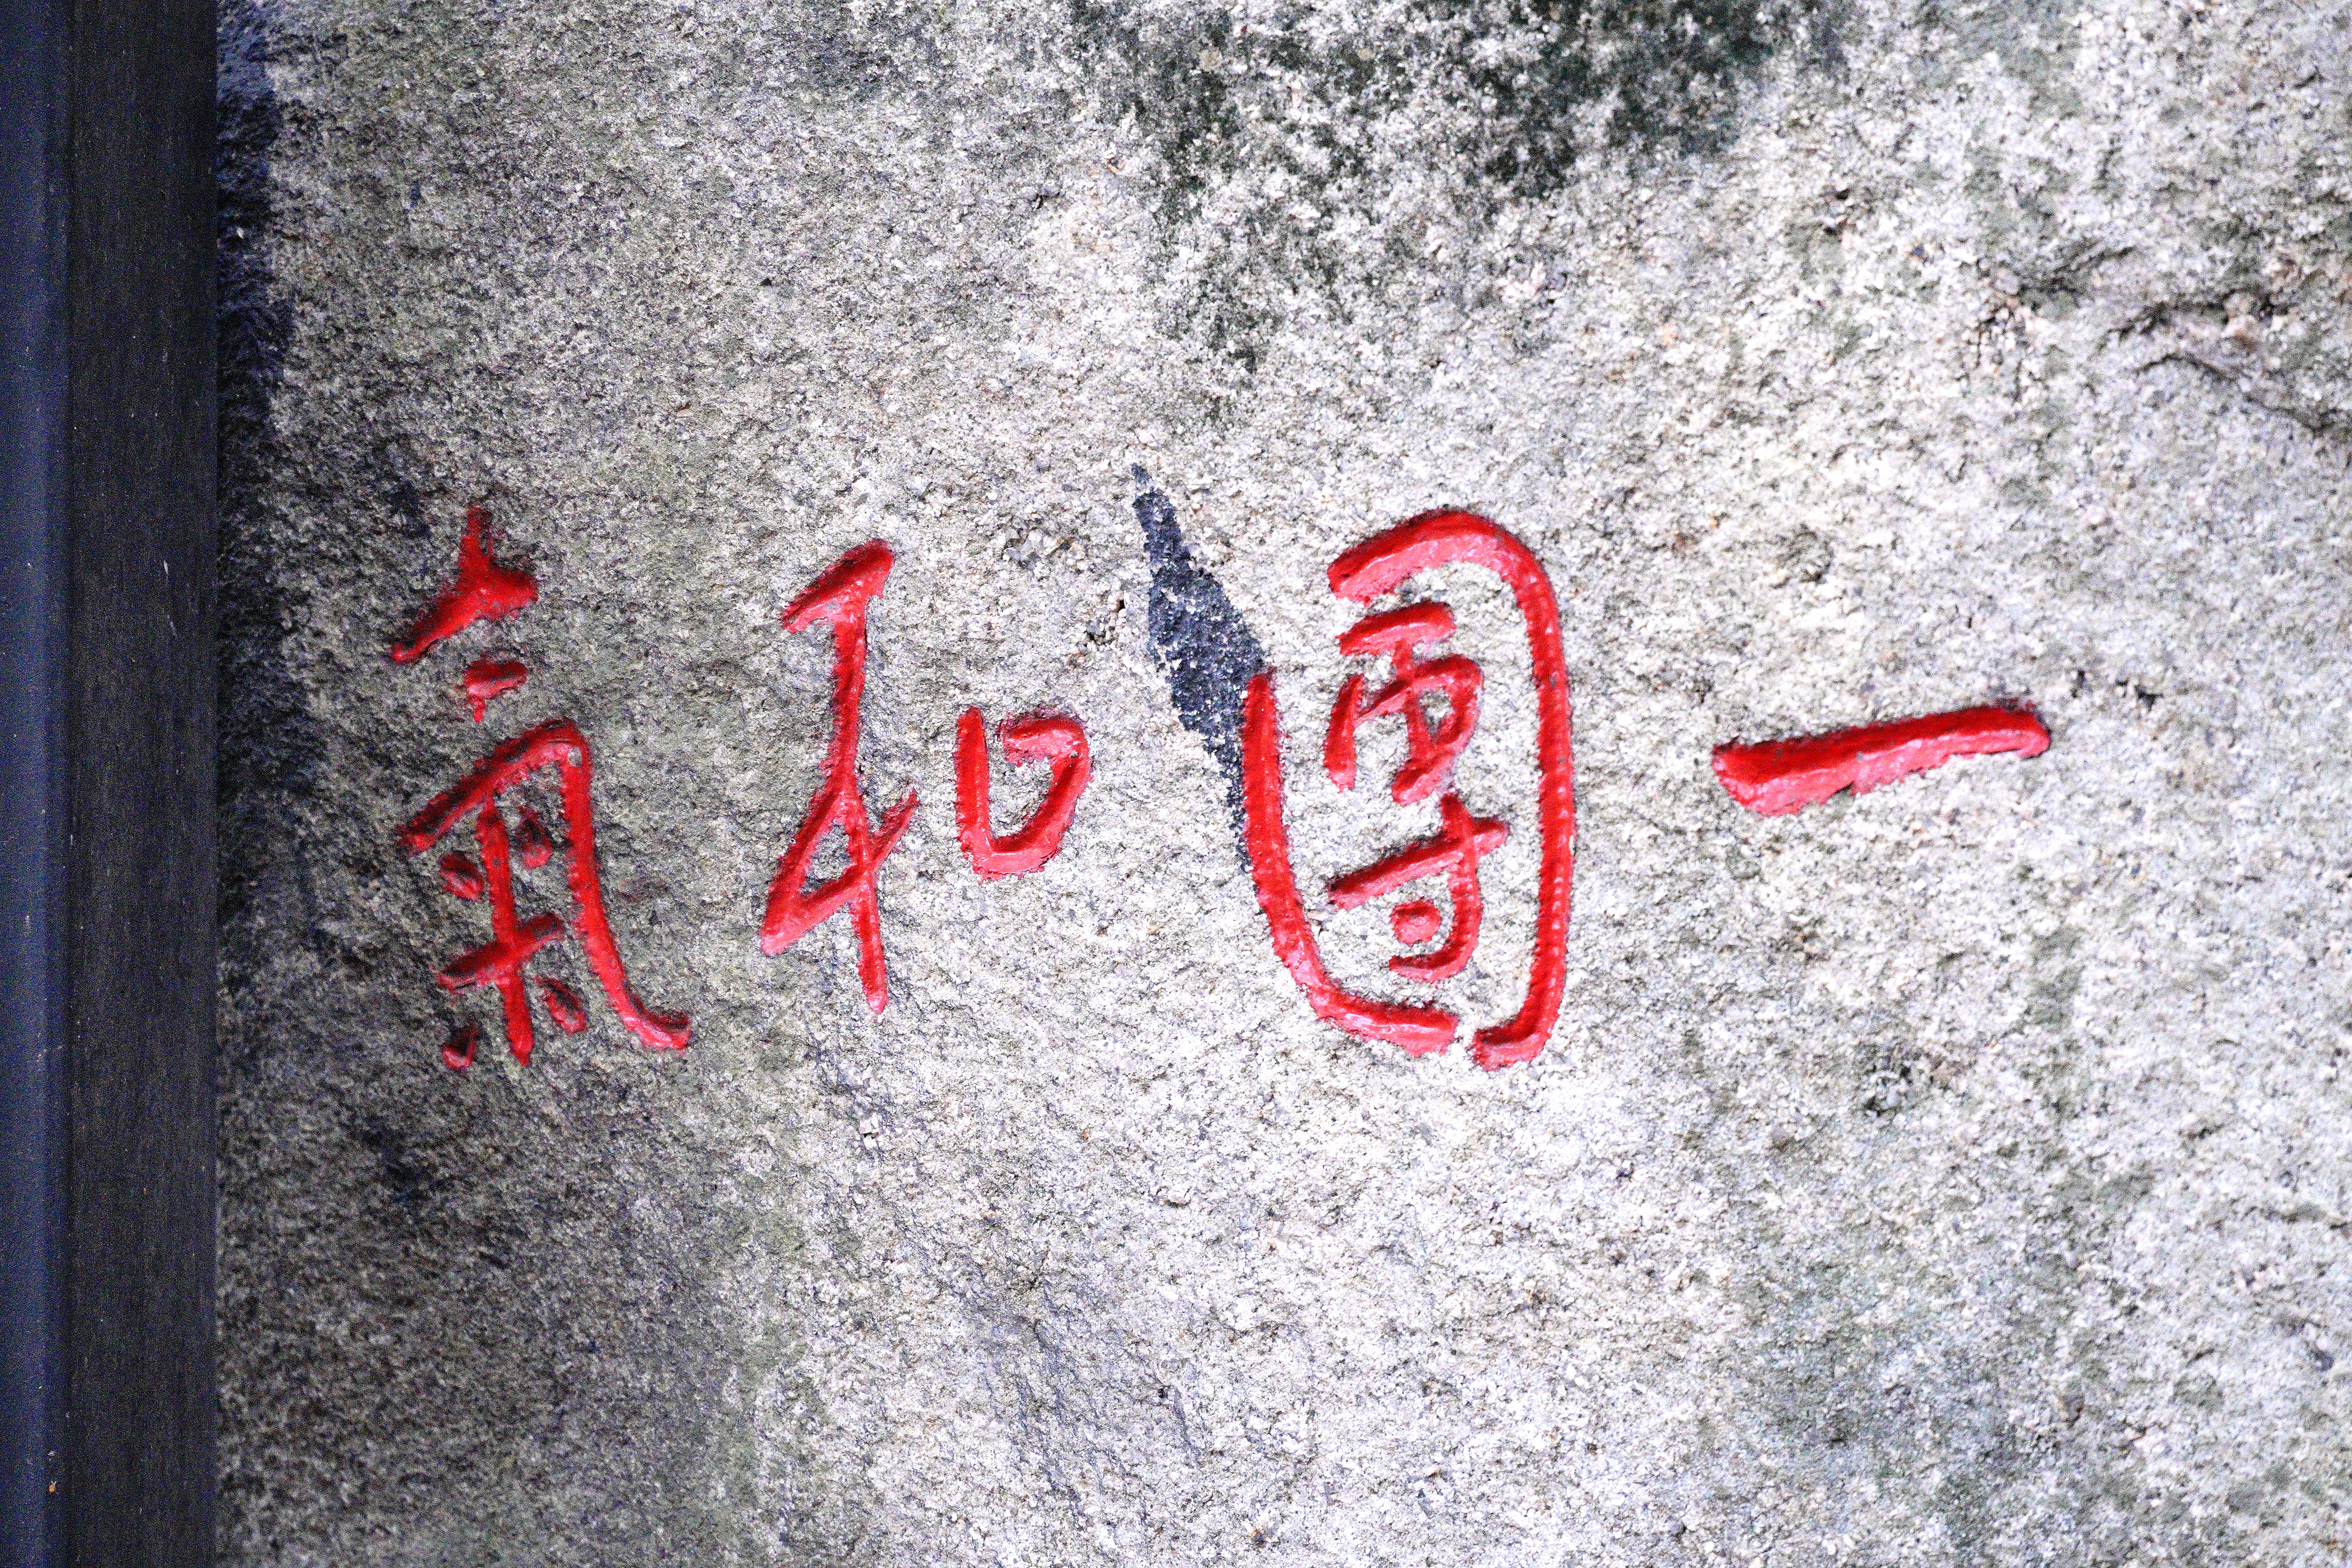 一團和氣